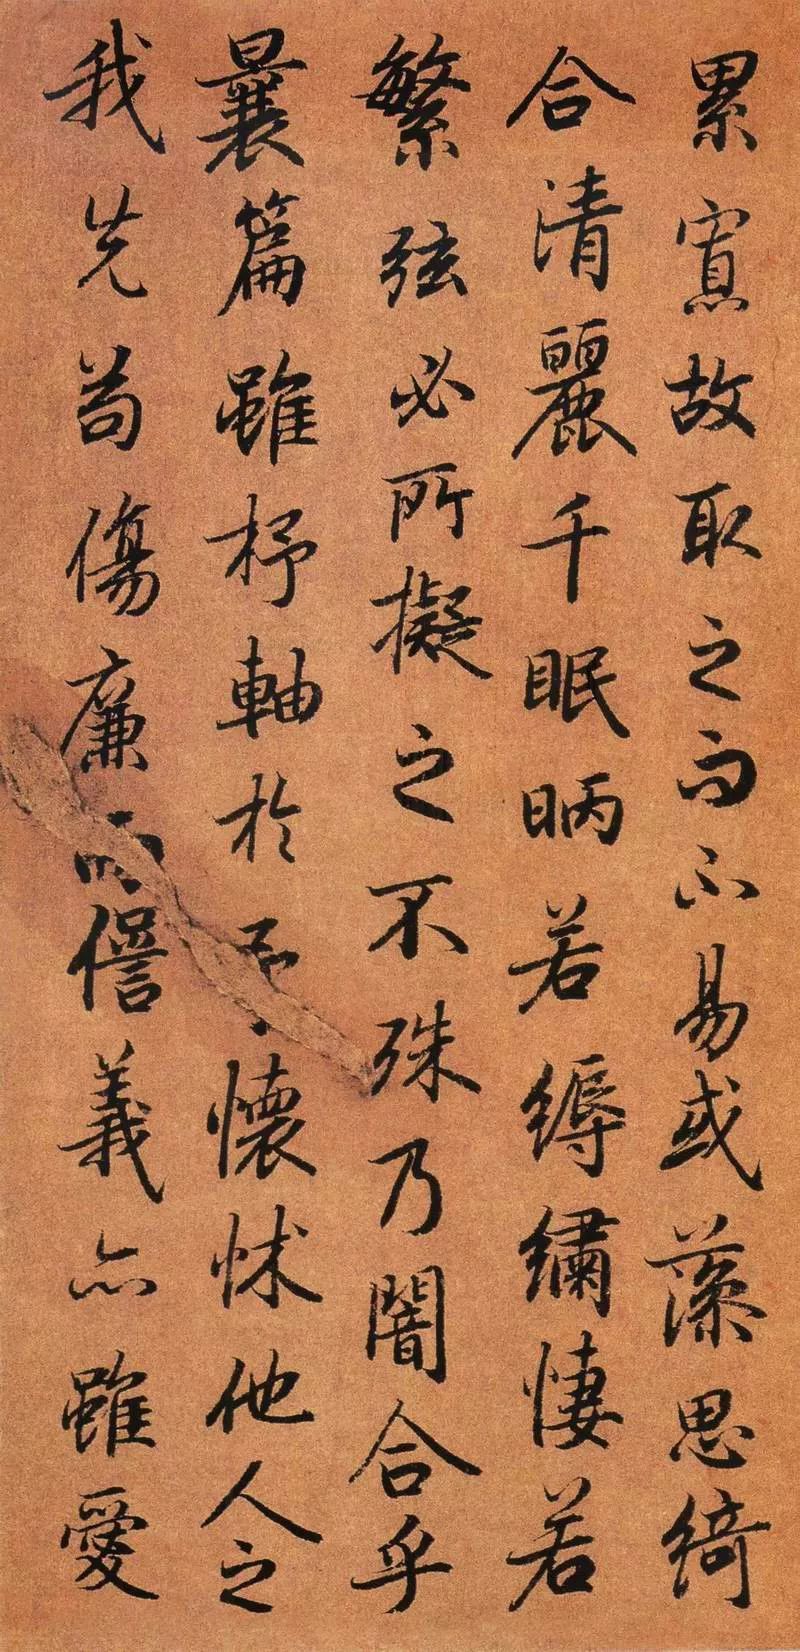 累寡故取之而不易或藻思綺
合清麗千眠昞若縟繡悽若
繁弦必所擬之不殊乃闇合乎
曩篇雖杼軸於予懷怵他人之
我先苟傷廉而愆義亦雖愛